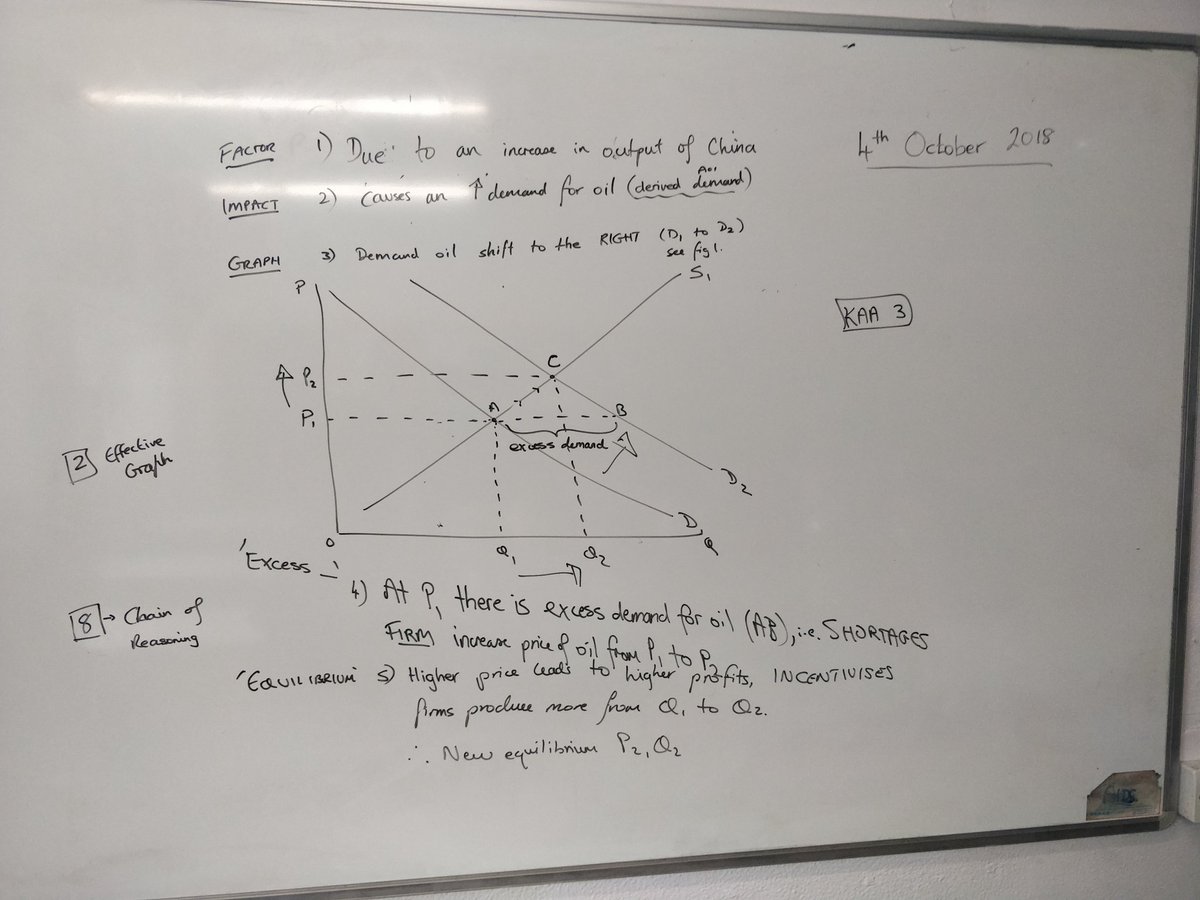 4th October 2018
FACTOR 1) Due to an increase in output of China
IMPACT 2) Causes an ↑ demand for oil (derived demand)
AO1
GRAPH 3) Demand oil shift to the RIGHT (D1 to D2)
see fig 1.
KAA 3
P
S1
C
P2
A
B
P1
excess demand
2 Effective
Graph
D2
D
O
Q1
Q2
Q
'Excess
4) At P1 there is excess demand for oil (AB), i.e. SHORTAGES
8 → Chain of
Reasoning
FIRM increase price of oil from P1 to P2
'EQUILIBRIUM' 5) Higher price leads to higher profits, INCENTIVISES
firms produce more from Q1 to Q2.
∴ New equilibrium P2, Q2